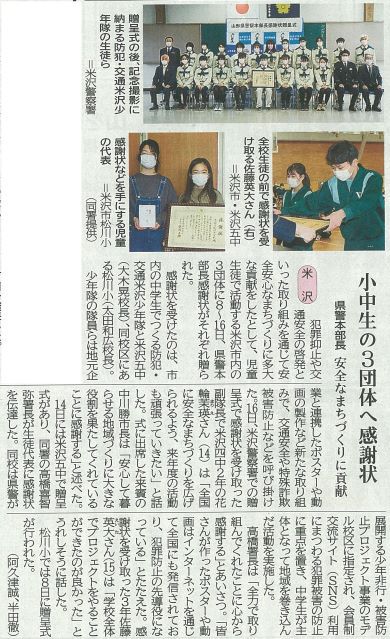 山形県警察本部長感謝状贈呈式
贈呈式の後、記念撮影に
納まる防犯・交通米沢少
年隊の生徒ら
＝米沢警察署
全校生徒の前で感謝状を受
け取る佐藤英大さん（右）
＝米沢市・米沢五中
感謝状などを手にする児童
の代表　＝米沢市・松川小
（同署提供）
小中生の3団体へ感謝状
県警本部長　安全なまちづくりに貢献
米沢
犯罪抑止や交
通安全の啓発と
いった取り組みを通じて安
全安心なまちづくりに多大
な貢献をしたとして、児童
生徒で活動する米沢市内の
3団体に8～16日、県警本
部長感謝状がそれぞれ贈ら
れた。
感謝状を受けたのは、市
内の中学生でつくる防犯・
交通米沢少年隊と米沢五中
（大木晃校長）、同校区にあ
る松川小（太田和広校長）。
少年隊の隊員らは地元企
業と連携したポスターや動
画の製作など新たな取り組
みで、交通安全や特殊詐欺
被害防止などを呼び掛け
た。16日、米沢警察署での贈
呈式で感謝状を受け取った
副隊長で米沢四中2年の花
輪茉瑛さん（14）は「全国
に安全なまちづくりを広げ
られるよう、来年度の活動
も頑張っていきたい」と話
した。式に出席した来賓の
中川勝市長は「安心して暮
らせる地域づくりに大きな
役割を果たしてくれている
ことに感謝する」と述べた。
14日には米沢五中で贈呈
式があり、同署の高橋喜智
弥署長が生徒代表に感謝状
を伝達した。同校は県警が
展開する少年非行・被害防
止プロジェクト事業のモデ
ル校区に指定され、会員制
交流サイト（SNS）利用
にまつわる犯罪被害の防止
に重点を置き、中学生が主
体となって地域を巻き込ん
だ活動を実施した。
高橋署長は「全力で取り
組んでくれたことに心から
感謝する」とあいさつ。「皆
さんが作ったポスターや動
画はインターネットを通じ
て全国にも発信されてお
り、犯罪防止の先導役にな
っている」とたたえた。感
謝状を受け取った3年佐藤
英大さん（15）は「学校全体
でプロジェクトをやること
ができたのが良かった」と
うれしそうに話した。
松川小では8日に贈呈式
が行われた。
（阿久津誠、半田徹）